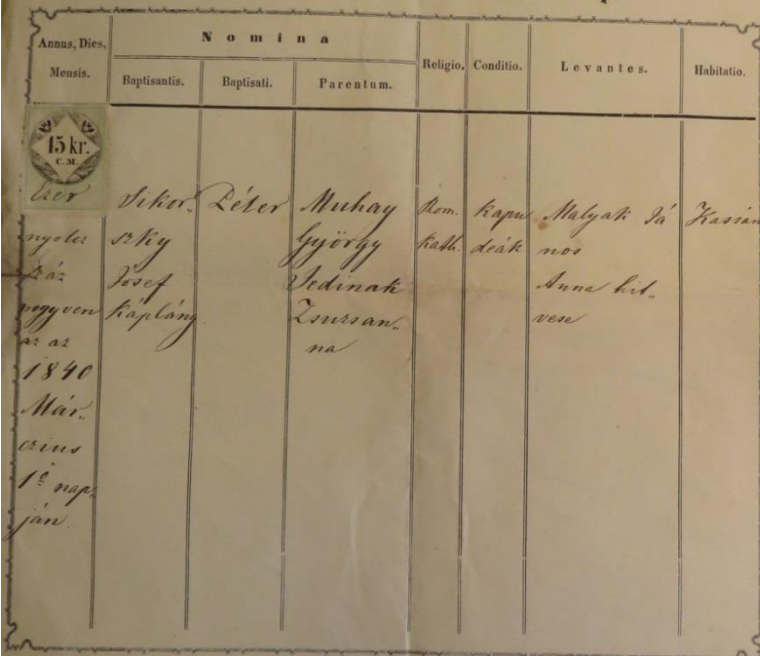 Nomina
Annus, Dies, Mensis.
Baptisantis.
Baptisati.
Parentum.
Religio.
Conditio.
Levantes.
Habitatio.
15 kr.
C.M.
Ezer
nyolcz
száz
negyven
az az
1840
Már-
czius
1ő nap-
ján.
Sikor-
szky
Josef
Káplány
Péter
Muhay
György
Jedinak
Zsuzsan-
na
Rom.
Kath.
Kapu
deák
Malyak Já
nos
Anna hit-
vese
Kassán